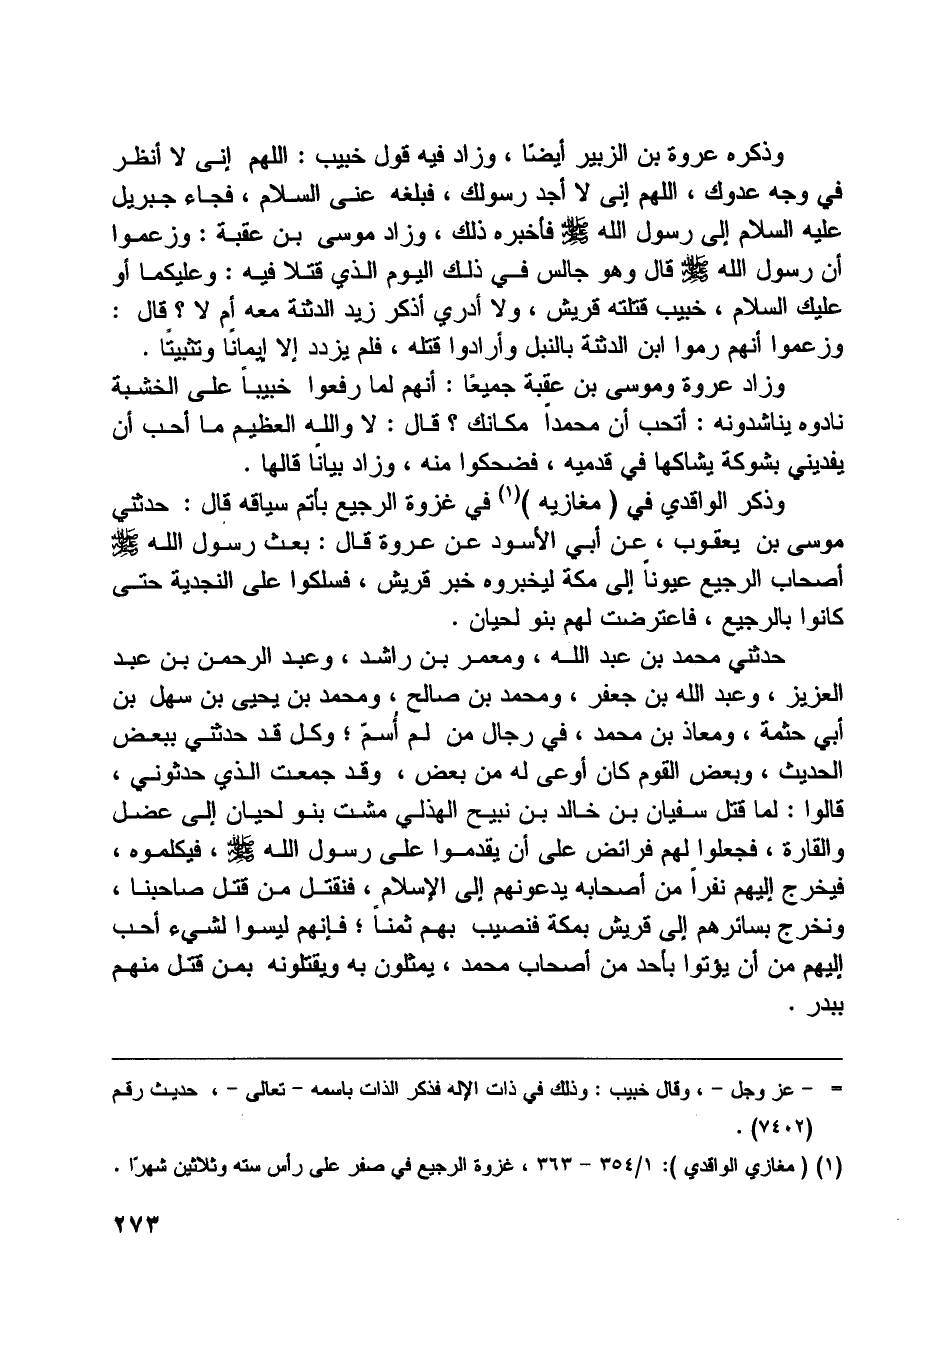 وذكره عروة بن الزبير أيضًا ، وزاد فيه قول خبيب : اللهم إنى لا أنظر
في وجه عدوك ، اللهم إنى لا أجد رسولك ، فبلغه عنى السلام ، فجاء جبريل
عليه السلام إلى رسول الله ﷺ فأخبره ذلك ، وزاد موسى بن عقبة : وزعموا
أن رسول الله ﷺ قال وهو جالس في ذلك اليوم الذي قتلا فيه : وعليكما أو
عليك السلام ، خبيب قتلته قريش ، ولا أدري أذكر زيد الدثنة معه أم لا ؟ قال :
وزعموا أنهم رموا ابن الدثنة بالنبل وأرادوا قتله ، فلم يزدد إلا إيمانًا وتثبيتًا .
وزاد عروة وموسى بن عقبة جميعًا : أنهم لما رفعوا خبيباً على الخشبة
نادوه يناشدونه : أتحب أن محمداً مكانك ؟ قال : لا والله العظيم ما أحب أن
يفديني بشوكة يشاكها في قدميه ، فضحكوا منه ، وزاد بيانًا قالها .
وذكر الواقدي في ( مغازيه )(١) في غزوة الرجيع بأتم سياقه قال : حدثني
موسى بن يعقوب ، عن أبي الأسود عن عروة قال : بعث رسول الله ﷺ
أصحاب الرجيع عيوناً إلى مكة ليخبروه خبر قريش ، فسلكوا على النجدية حتى
كانوا بالرجيع ، فاعترضت لهم بنو لحيان .
حدثني محمد بن عبد الله ، ومعمر بن راشد ، وعبد الرحمن بن عبد
العزيز ، وعبد الله بن جعفر ، ومحمد بن صالح ، ومحمد بن يحيى بن سهل بن
أبي حثمة ، ومعاذ بن محمد ، في رجال من لم أُسمّ ؛ وكل قد حدثني ببعض
الحديث ، وبعض القوم كان أوعى له من بعض ، وقد جمعت الذي حدثوني ،
قالوا : لما قتل سفيان بن خالد بن نبيح الهذلي مشت بنو لحيان إلى عضل
والقارة ، فجعلوا لهم فرائض على أن يقدموا على رسول الله ﷺ ، فيكلموه ،
فيخرج إليهم نفراً من أصحابه يدعونهم إلى الإسلام ، فنقتل من قتل صاحبنا ،
ونخرج بسائرهم إلى قريش بمكة فنصيب بهم ثمناً ؛ فإنهم ليسوا لشيء أحب
إليهم من أن يؤتوا بأحد من أصحاب محمد ، يمثلون به ويقتلونه بمن قتل منهم
ببدر .
= - عز وجل - ، وقال خبيب : وذلك في ذات الإله فذكر الذات باسمه - تعالى - ، حديث رقم
(٧٤٠٢) .
(١) ( مغازي الواقدي ): ٣٥٤/١ - ٣٦٣ ، غزوة الرجيع في صفر على رأس سته وثلاثين شهرًا .
٢٧٣